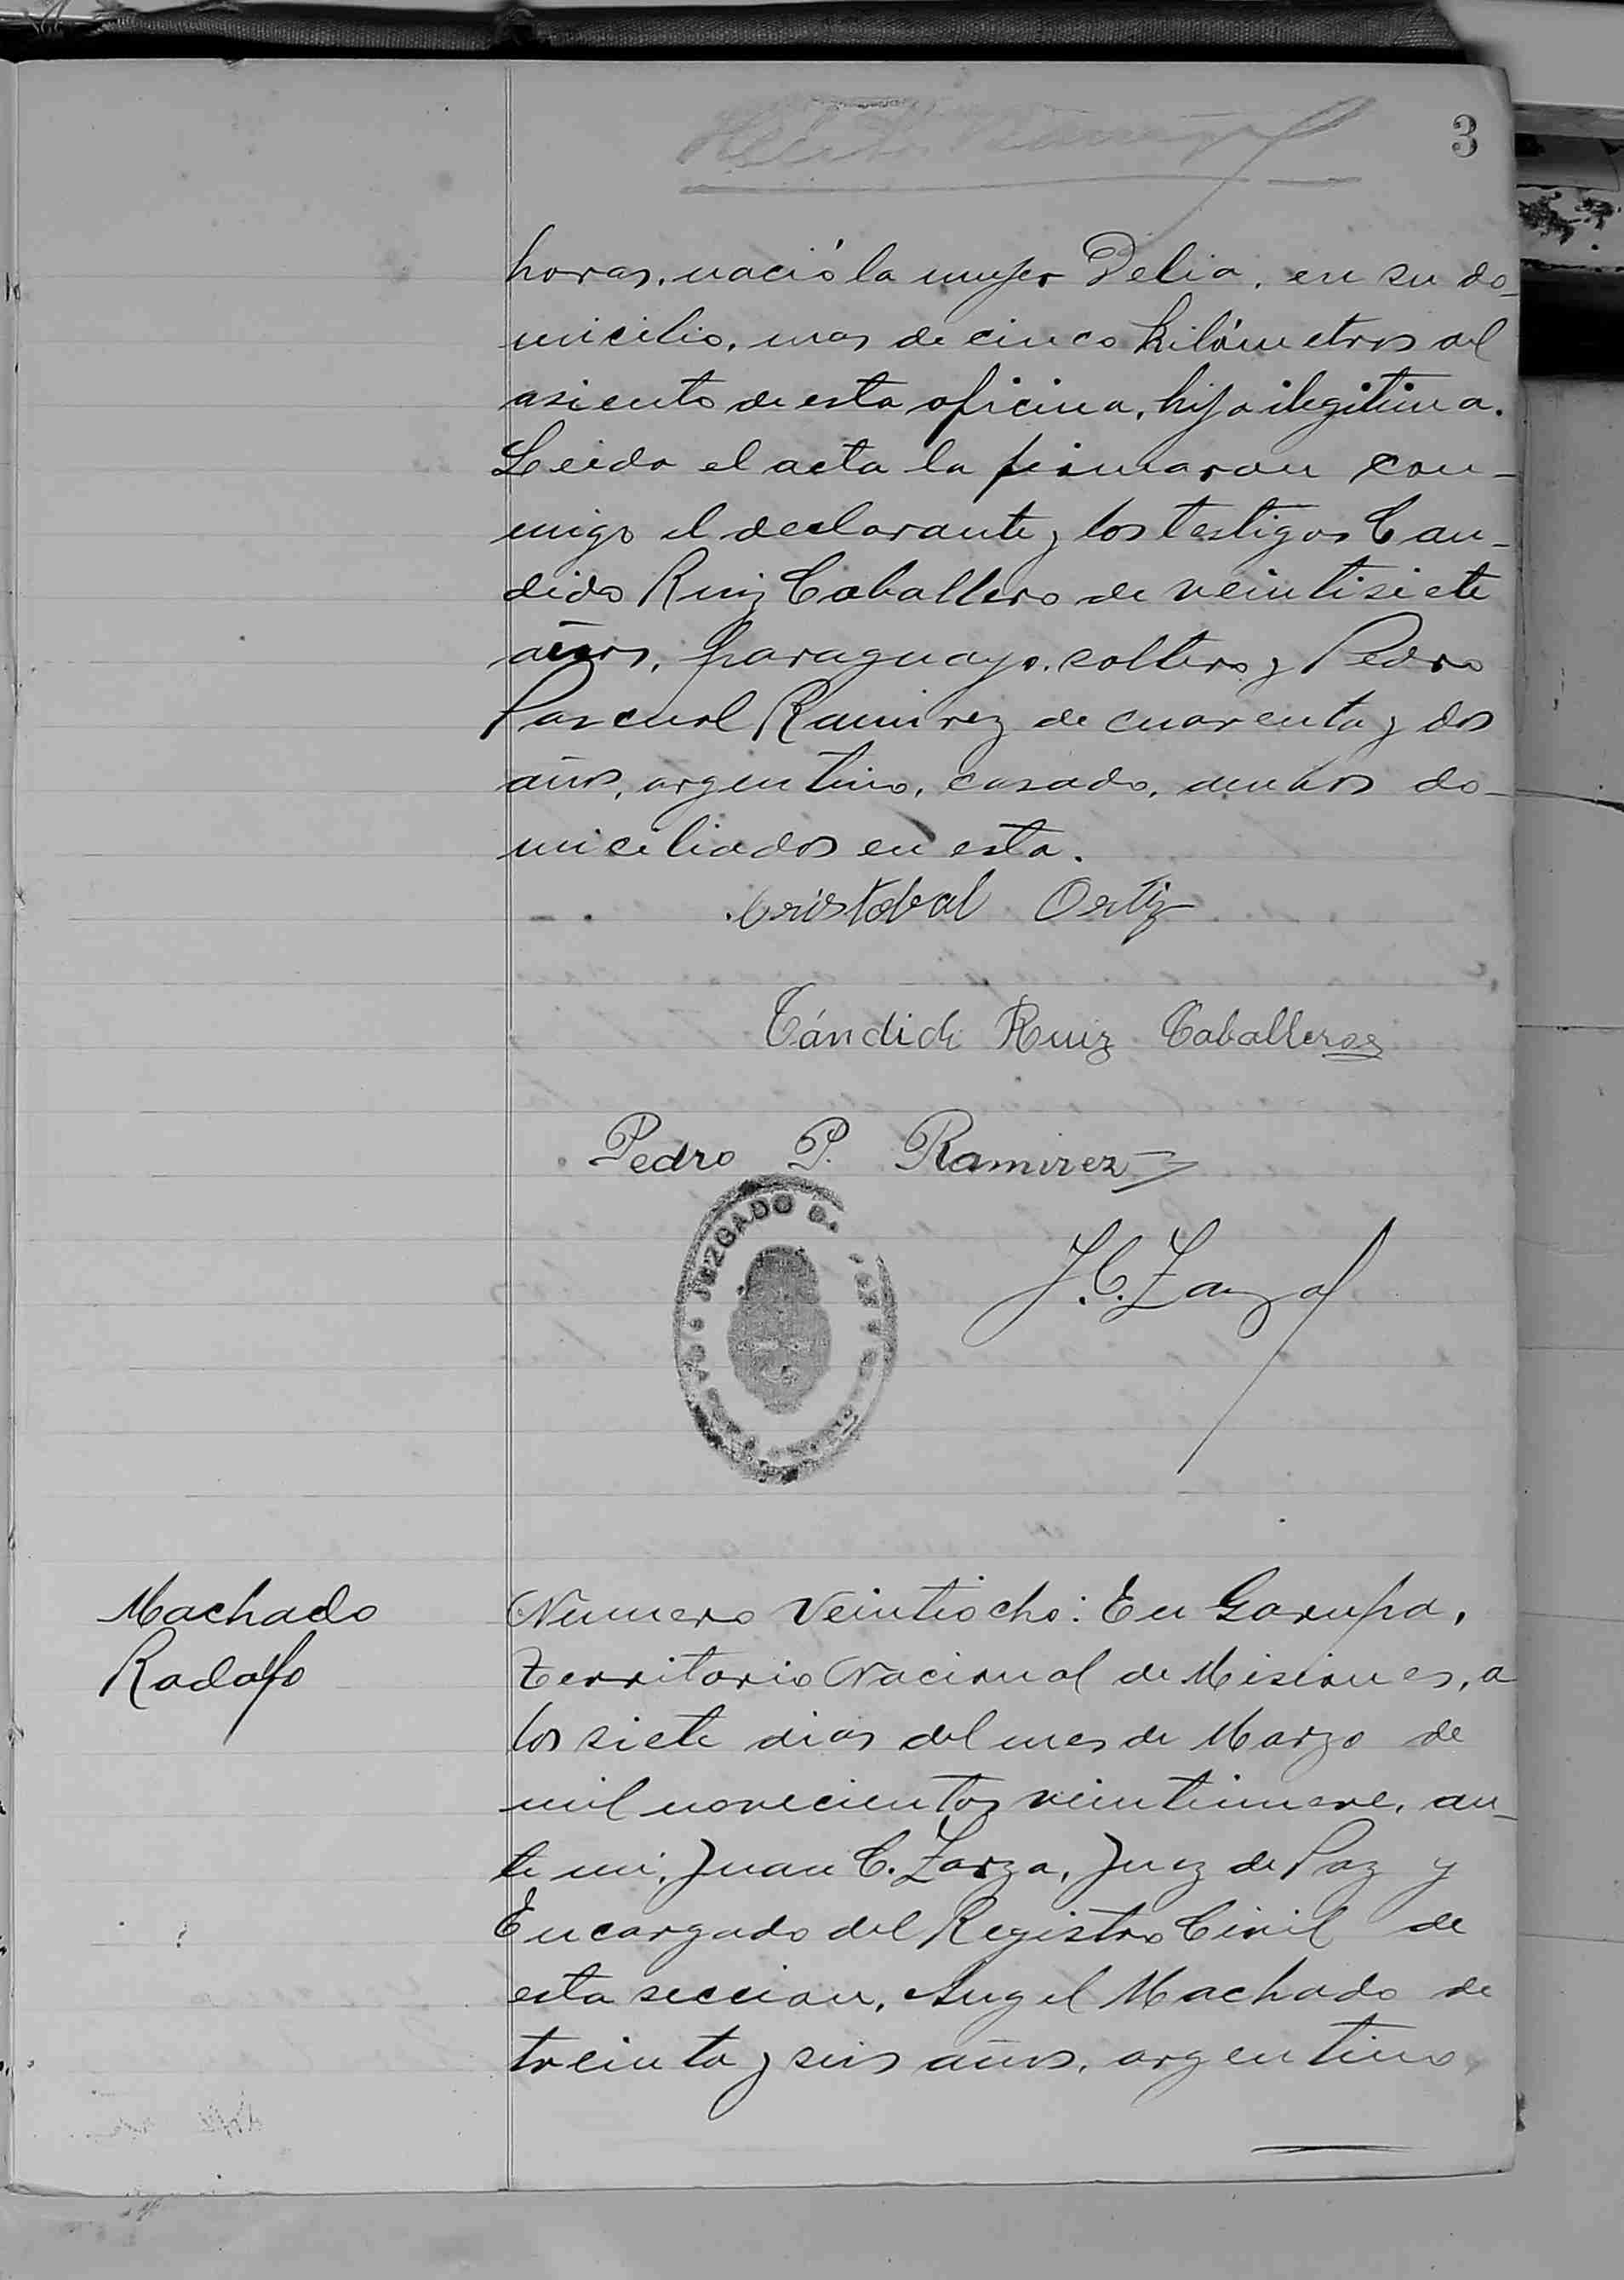 3
horas, nació la mujer Delia, en su do-
micilio, mas de cinco kilómetros al
asiento de esta oficina, hija ilegitima.
Leida el acta la firmaron con-
migo el declarante y los testigos Can-
dido Ruiz Caballero de veintisiete
años, paraguayo, soltero y Pedro
Pascual Ramirez de cuarenta y dos
años, argentino, casado, ambos do-
miciliados en esta.
Cristobal Ortiz
Cándido Ruiz Caballero
Pedro P. Ramirez
JUZGADO
J. C. Zarza
Machado
Rodolfo
Numero veintiocho: En Garupa,
Territorio Nacional de Misiones, a
los siete dias del mes de Marzo de
mil novecientos veintinueve, an-
te mi, Juan C. Zarza, Juez de Paz y
Encargado del Registro Civil de
esta seccion, Angel Machado de
treinta y seis años, argentino,